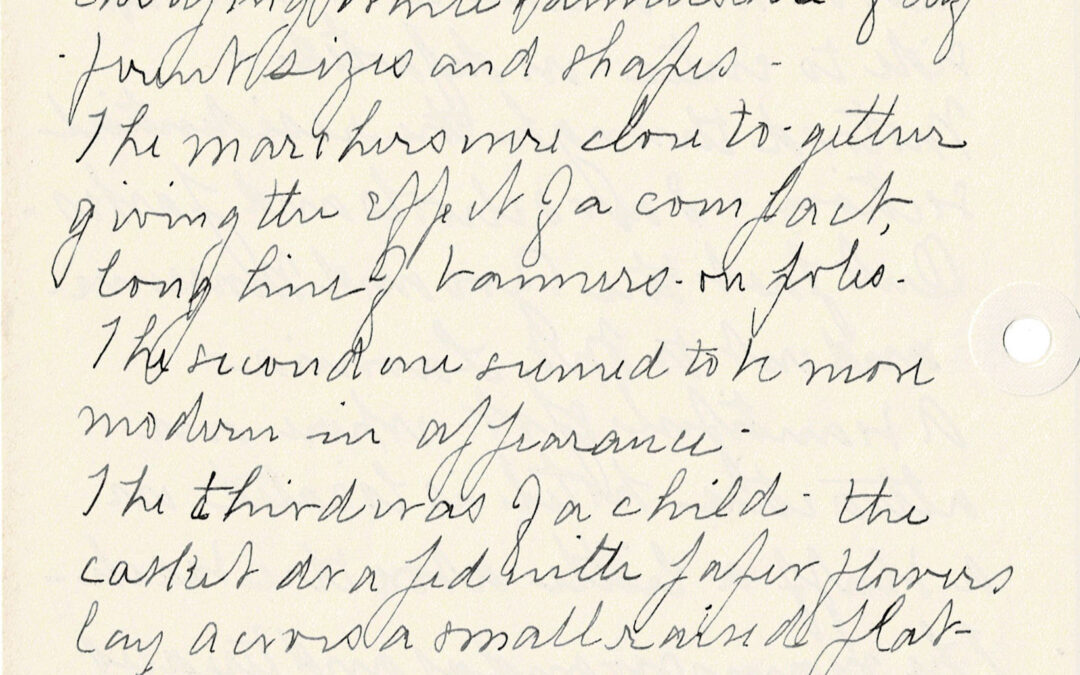 white banners of dif-
ferent sizes and shapes -
The marchers were close to-gether
giving the effect of a compact,
long line of banners - on poles -
The second one seemed to be more
modern in appearance -
The third was of a child - the
casket draped with paper flowers
lay across a small raised plat-